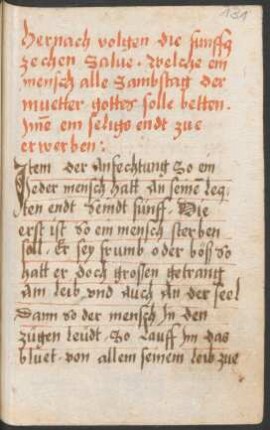 131
hernach volgen die funfftz
zechen Salue. Welche ein
mensch alle Sambstag der
muetter gottes solle betten.
Ime ein seligs endt zue
erwerben:
Item der Anfechtung So ein
Jeder mensch hatt An seine leg,
sten endt Seindt funff. Die
erst ist So ein mensch sterben
soll. Er sey frumb oder böß So
hatt er doch grossen getrang
Am leib vnd Auch An der seel
Dann so der mensch In den
zügen leudt. So lauff Im das
bluet. von allem seinem leib zue